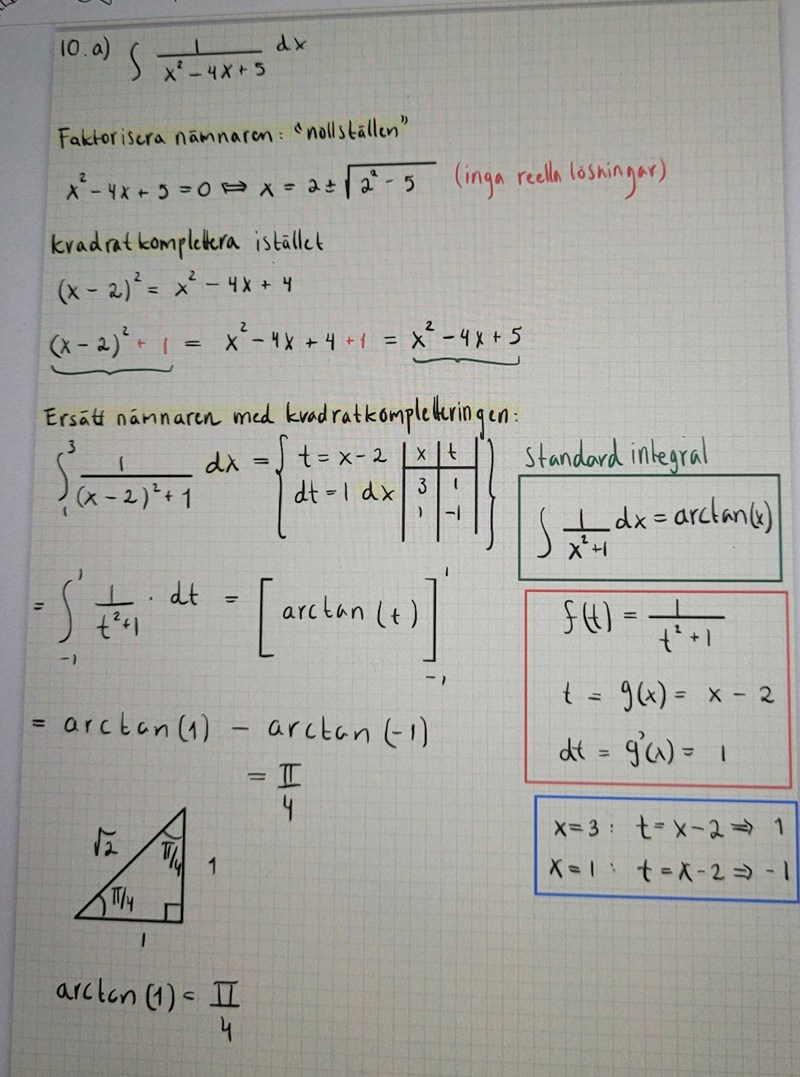 10. a) ∫ 1/(x² - 4x + 5) dx
Faktorisera nämnaren: "nollställen"
x² - 4x + 5 = 0 ⇔ x = 2 ± √(2² - 5) (inga reella lösningar)
kvadratkomplettera istället
(x - 2)² = x² - 4x + 4
(x - 2)² + 1 = x² - 4x + 4 + 1 = x² - 4x + 5
Ersätt nämnaren med kvadratkompletteringen:
∫₁³ 1/((x - 2)² + 1) dx = { t = x - 2 | x | t |
dt = 1 dx | 3 | 1 |
| 1 | -1 | }
Standard integral
∫ 1/(x² + 1) dx = arctan(x)
= ∫₋₁¹ 1/(t² + 1) · dt = [arctan(t)]₋₁¹
f(t) = 1/(t² + 1)
t = g(x) = x - 2
dt = g'(x) = 1
= arctan(1) - arctan(-1)
= π/4
x = 3 : t = x - 2 ⇒ 1
x = 1 : t = x - 2 ⇒ -1
√2
π/4
1
π/4
1
arctan(1) = π/4